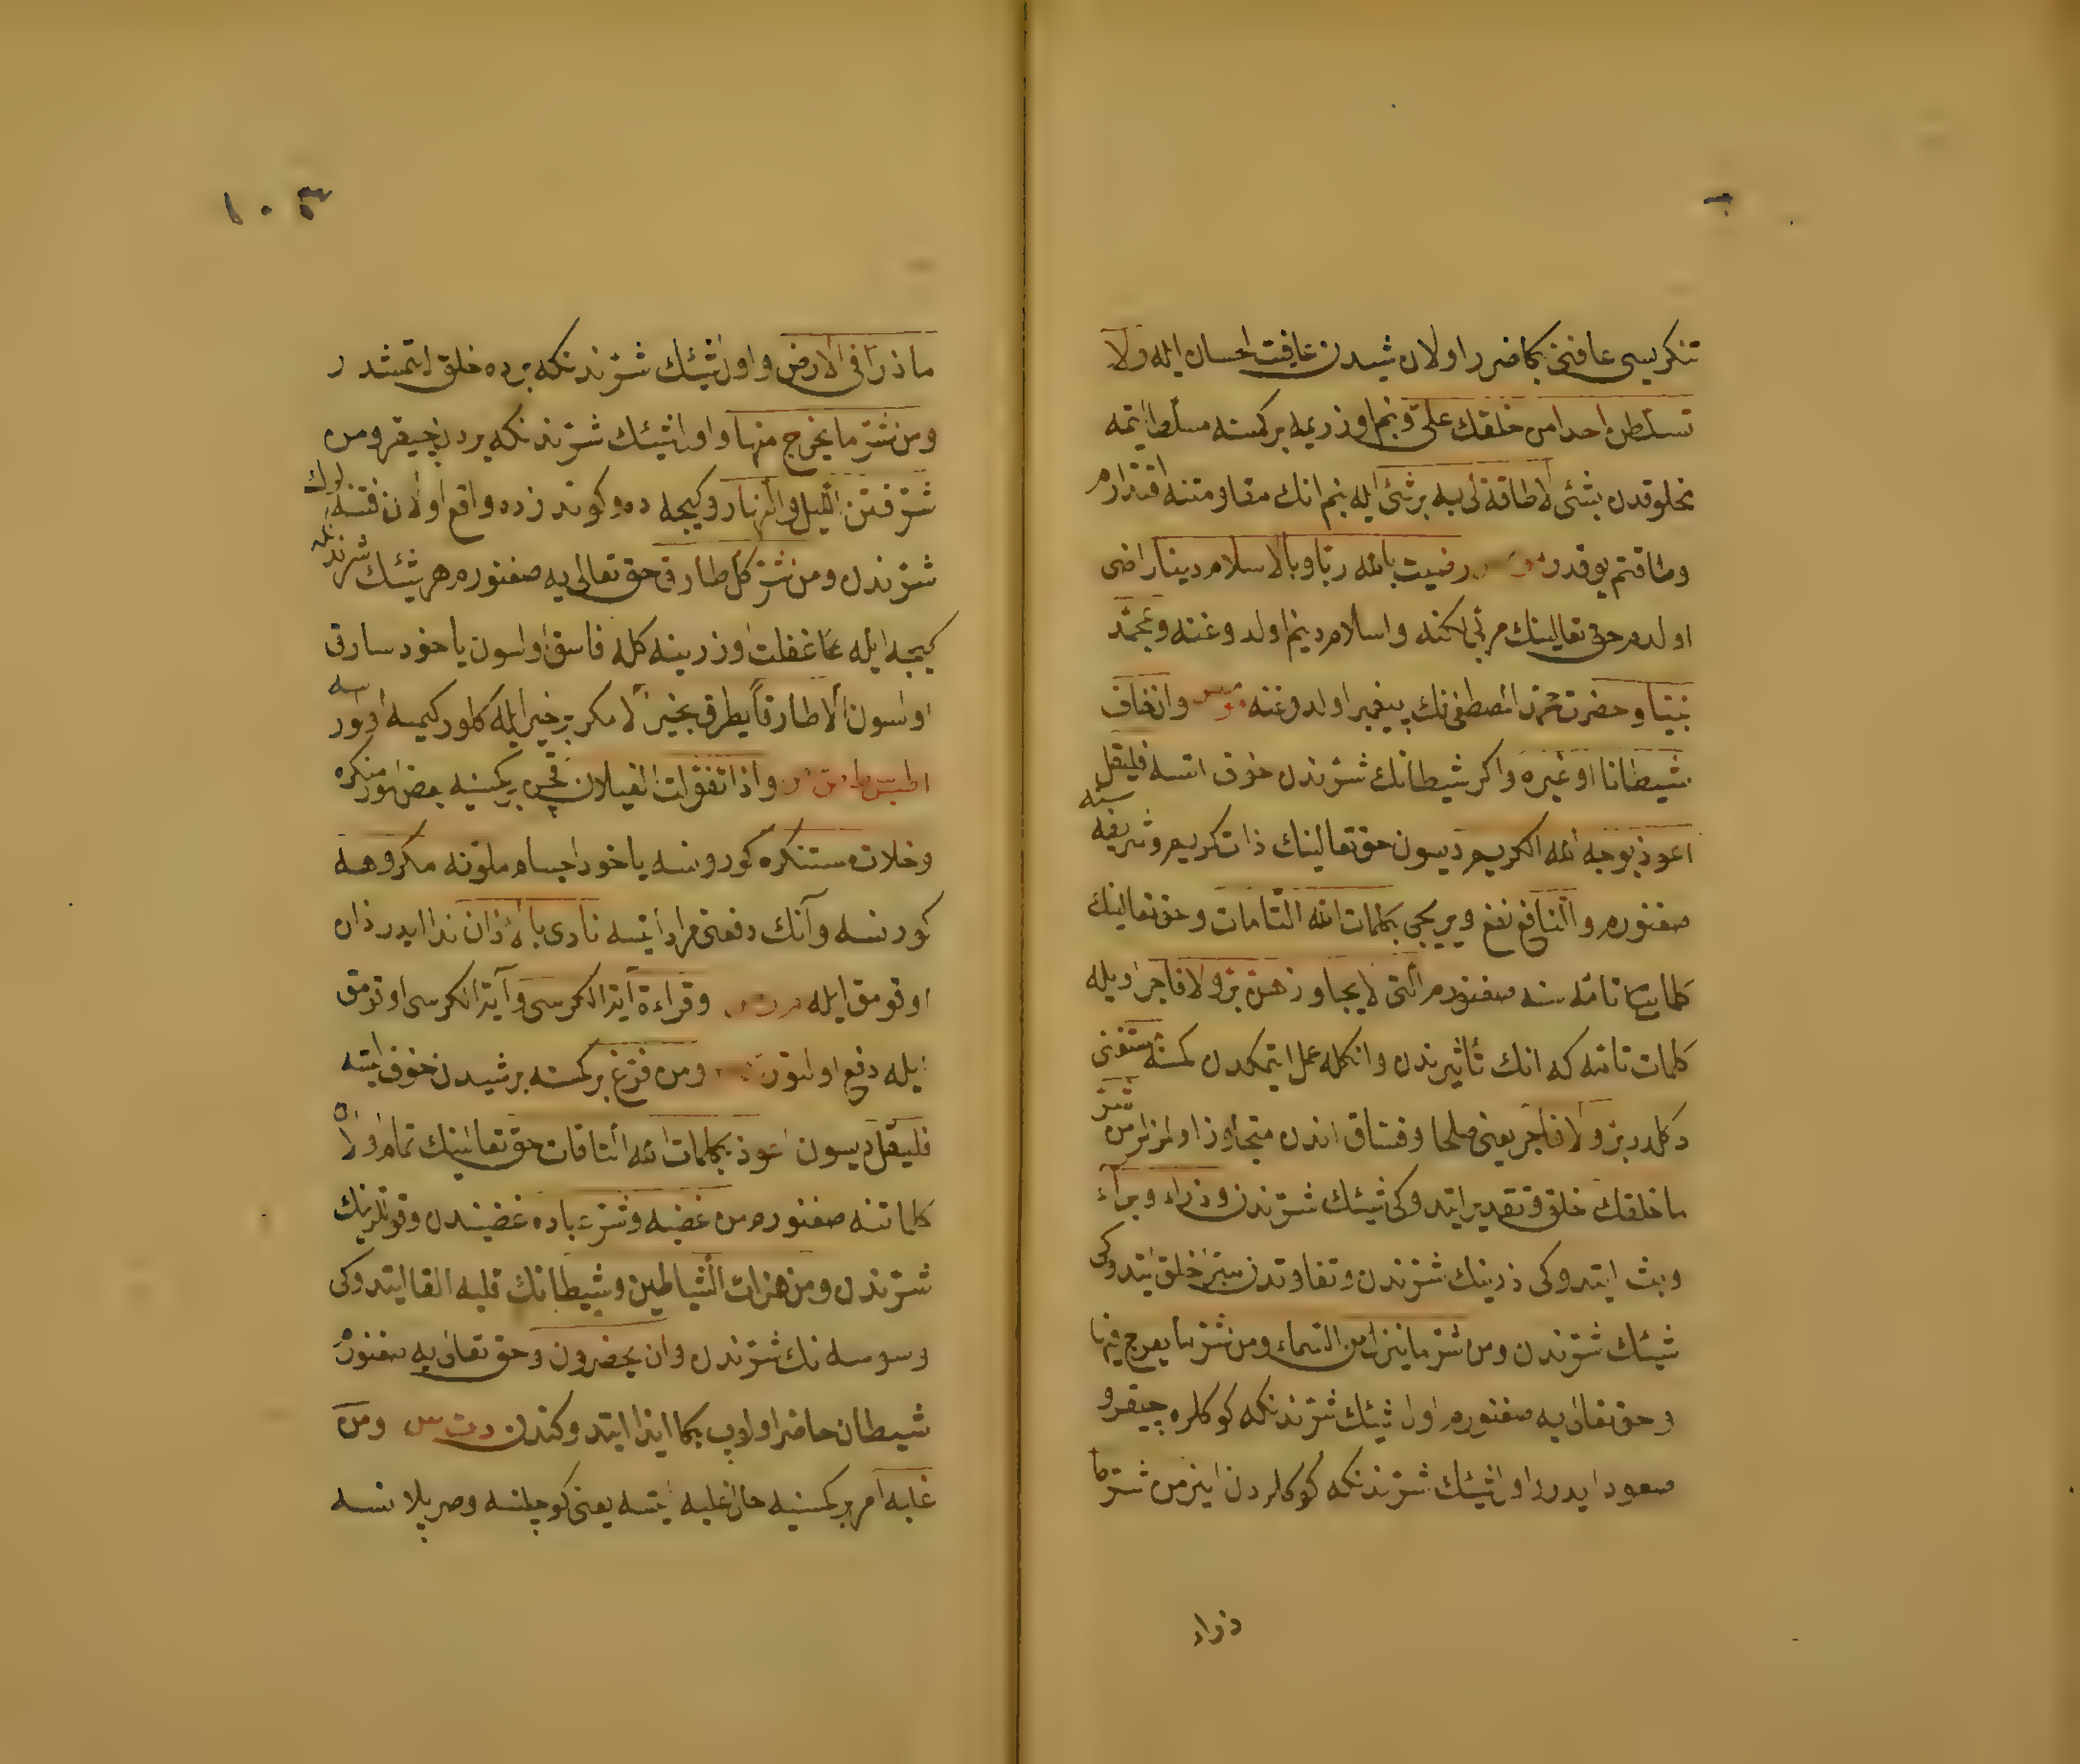 تنكريسى عافنى بكا ضرر اولان شيدن عافيت احسان ايله ولا
تسلطن احدا من خلقك على وبنم اوزريمه بر كمسنه مسلط ايتمه
مخلوقدن بشئ لا طاقة لى به بر شئ ايله بنم انك مقاومتنه اقتدارم
وطاقتم يوقدر رضيت بالله ربا وبالاسلام دينا راضى
اولدم حق تعالينك مربى لكنه واسلام دينم اولدوغنه وبمحمد
نبيا وحضرت محمد المصطفى نك پيغمبر اولدوغنه وان خاف
شيطانا او غيره واكر شيطانك شرندن خوف اتسه فليقل
اعوذ بوجه الله الكريم ديسون حق تعالينك ذات كريم وشريفه سنه
صغنورم والنافع نفع ويريجى بكلمات الله التامات وحق تعالينك
كلمات تامه سنه صغنورم التى لا يجاوزهن بر ولا فاجر اويله
كلمات تامه كه انك تأثيرندن وانكله عمل ايتمكدن كمسنه مستغنى
دكلدر بر ولا فاجر يعنى صلحا وفساق اندن متجاوز اولمزلر من شر
ما خلقك خلق وتقدير ايتدوكى شيئك شرندن وذراء وبراء
وبث ايتدوكى ذرينك شرندن وتفاوتدن خلق ايتدوكى
شيئك شرندن ومن شر ما ينزل من السماء ومن شر ما يعرج فيها
وحق تعالى يه صغنورم اول شيئك شرندنكه كوكلره چيقر و
صعود ايدر واول شيئك شرندنكه كوكلردن اينر من شر ما
ذراء
١٠٣
ماذرا فى الارض واول شيئك شرندنكه يرده خلق ايتمشدر
ومن شر ما يخرج منها واول شيئك شرندنكه يردن چيقر ومن
شر فتن الليل والنهار وكيجه ده وكوندزده واقع اولان فتنه لرك
شرندن ومن شر كل طارق حق تعالى يه صغنورم هر شيئك شرندن
كيجه ايله غفلت اوزرينه كله فاسق اولسون ياخود سارق
اولسون الا طارقا يطرق بخير الا مكر بر خير ايله كلور كيمسه اولور سه
واذا تغولت الغيلان بر كمسنيه بعض امور منكره
وخلات مستنكره كورونسه ياخود اجسام ملونه مكروهه
كورنسه وآنك دفعنى مراد ايتسه نادى بالاذان ندا ايدر اذان
اوقومق ايله وقراءة آية الكرسى وآية الكرسى اوقومق
ايله دفع اولنور ومن فزع بر كمسنه بر شيدن خوف ايتسه
فليقل ديسون اعوذ بكلمات الله التامات حق تعالينك تمام اولان
كلماتنه صغنورم من غضبه وشر عباده غضبندن وقوللرينك
شرندن ومن همزات الشياطين وشيطانك قلبه القا ايتدوكى
وسوسه نك شرندن وان يحضرون وحق تعالى يه صغنورم
شيطان حاضر اولوب بكا ايذا ايتدوكندن د ت س ومن
غلبه امر بر كمسنيه حال غلبه ايتسه يعنى كوجلنسه وصرپلانسه